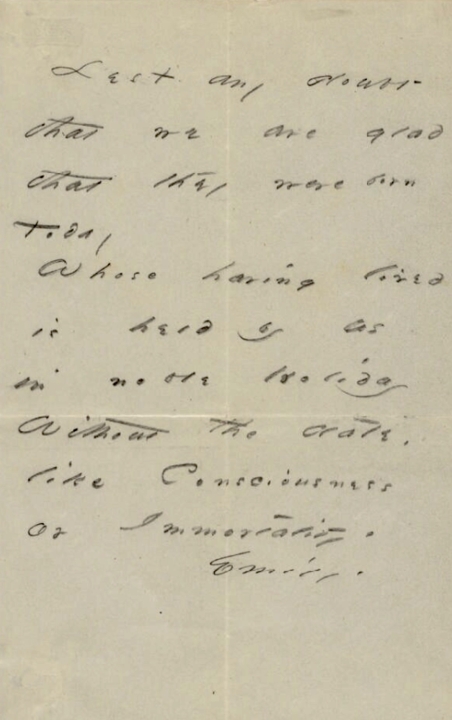 Lest any doubt
that we are glad
that they were born
Today
Whose having lived
is held by us
in noble Holiday
Without the date,
like Consciousness
or Immortality.
Emily.